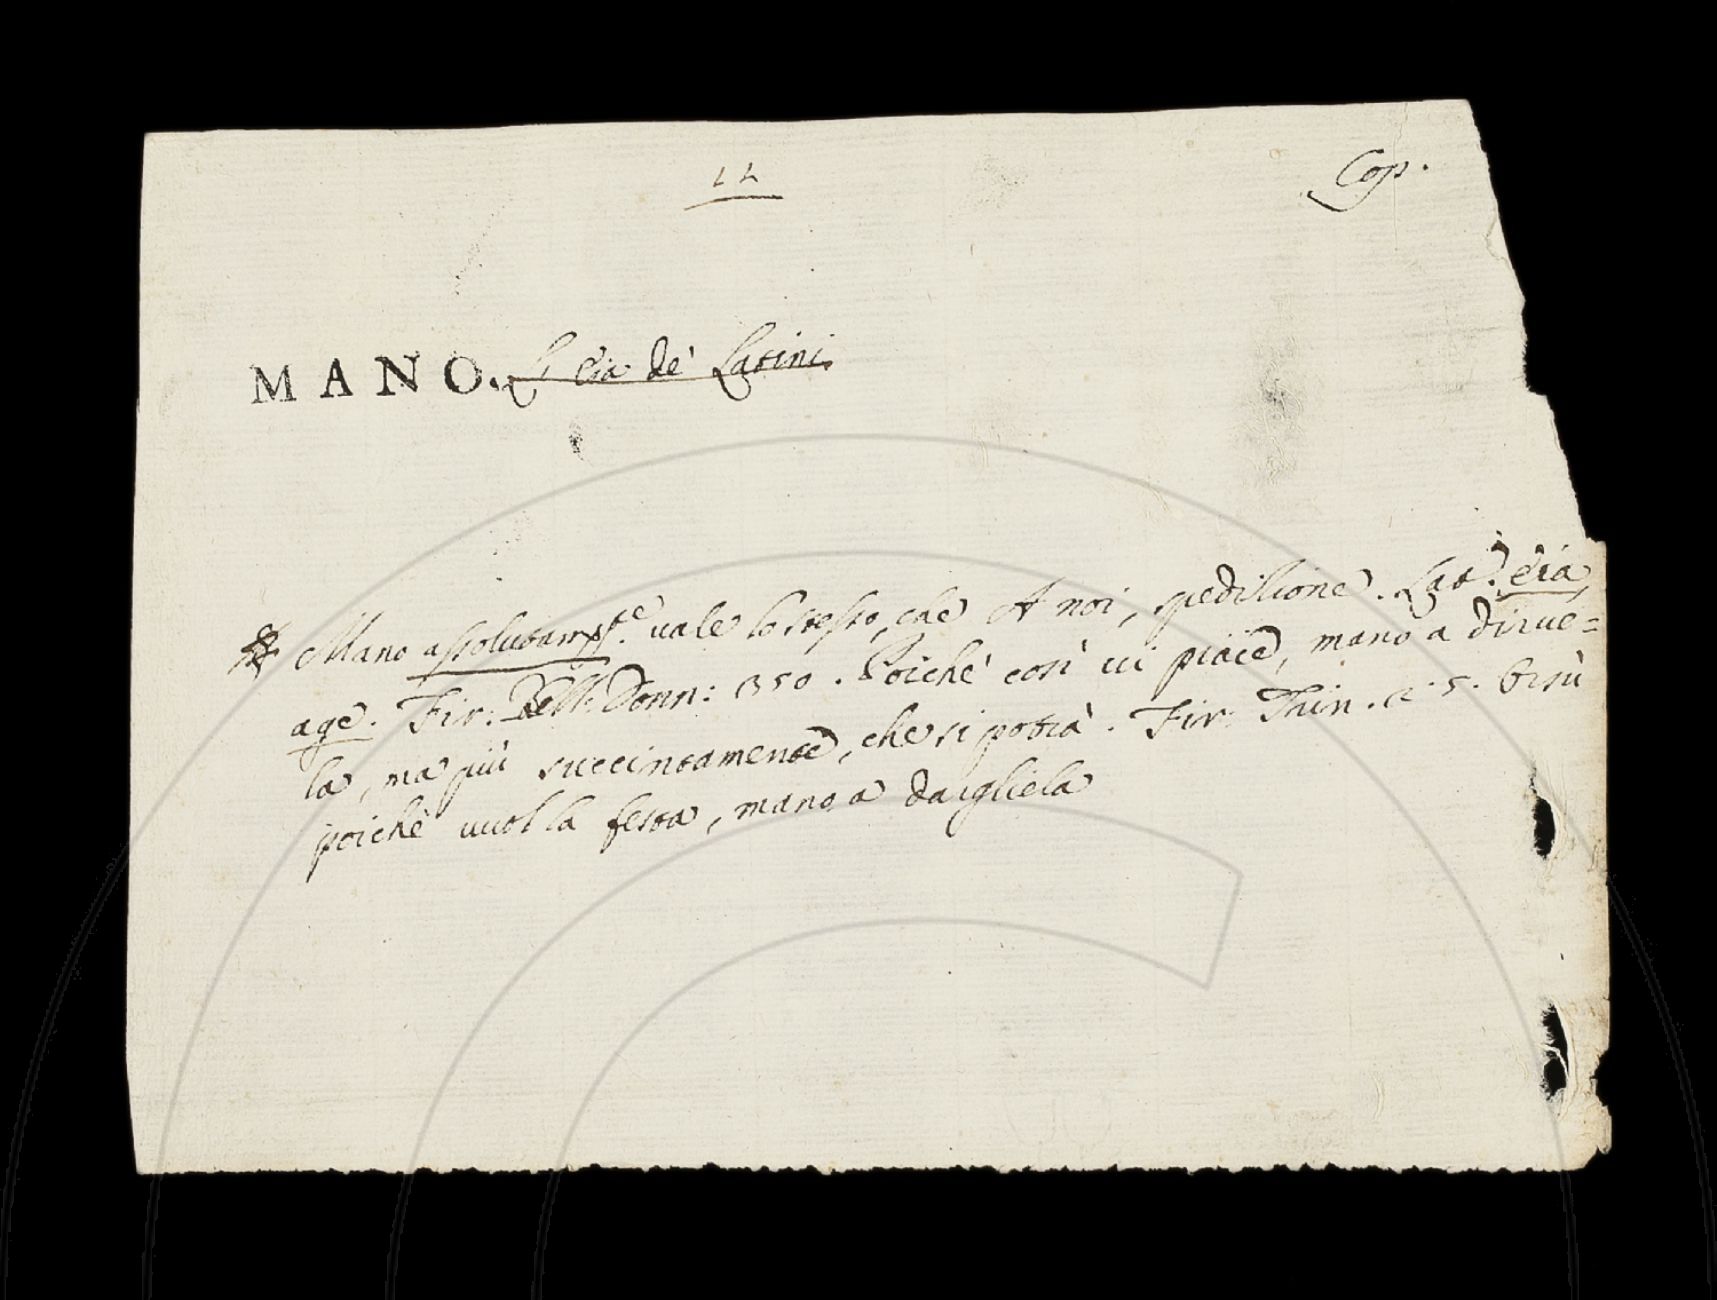 Cop.
MANO. L' Eia de' Latini.
Mano assolutam.te vale lo stesso, che A noi, spedizione. Lat. eia,
age. Fir. Bell. Donn: 350. Poiché così vi piace, mano a dirve=
la, ma più succintamente, che si potrà. Fir. Trin. 2. 5. Orsù
poiché vuol la festa, mano a dargliela